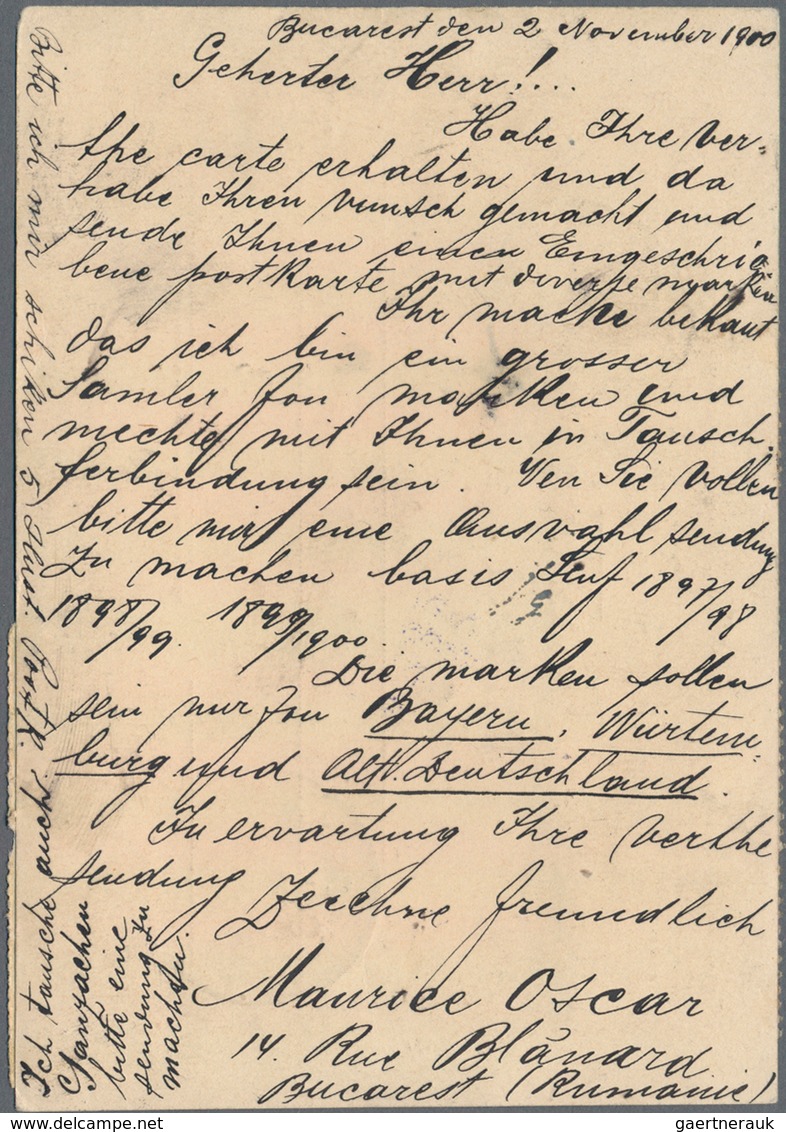 Bucarest den 2 November 1900
Geherter Herr!...
Habe Ihre ver-
the carte erhalten und da
habe Ihren vunsch gemacht und
sende Ihnen einen Eingeschrie
bene postkarte mit diverse marken
Ihr mache bekant
das ich bin ein grosser
Samler fon marken und
mechte mit Ihnen in Tausch.
ferbindung sein. Ven Sie vollen
bitte mir eine Ausvahl sendung
Zu machen basis Senf 1897/98
1898/99. 1899/1900.
Die marken sollen
sein nur fon Bayern, Würtem-
burg und Alt. Deutschland.
In ervartung Ihre verthe
sendung Zeechne freundlich
Maurice Oscar
14. Rue Blănard
Bucarest (Rumanie)
Bitte ich mir schiken 5 Post K.
Ich tausche auch
Ganzsachen
bitte eine
sendung zu
machen.
gaertnerauk